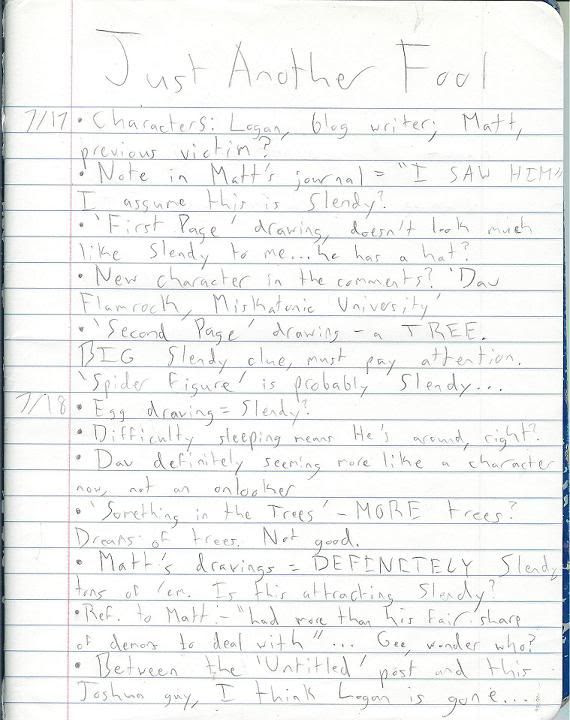 Just Another Fool
7/17 • Characters: Logan, blog writer; Matt,
previous victim?
• Note in Matt's journal = "I SAW HIM"
I assume this is Slendy?
• 'First Page' drawing, doesn't look much
like Slendy to me... he has a hat?
• New character in the comments? 'Dav
Flamrock, Miskatonic University'
• 'Second Page' drawing - a TREE.
BIG Slendy clue, must pay attention.
'Spider Figure' is probably Slendy...
7/18 • Egg drawing = Slendy?
• Difficulty sleeping means He's around, right?
• Dav definitely seeming more like a character
now, not an onlooker
• 'Something in the Trees' - MORE trees?
Dreams of trees. Not good.
• Matt's drawings = DEFINETELY Slendy,
tons of 'em. Is this attracting Slendy?
• Ref. to Matt - "had more than his fair share
of demons to deal with"... Gee, wonder who?
• Between the 'Untitled' post and this
Joshua guy, I think Logan is gone...